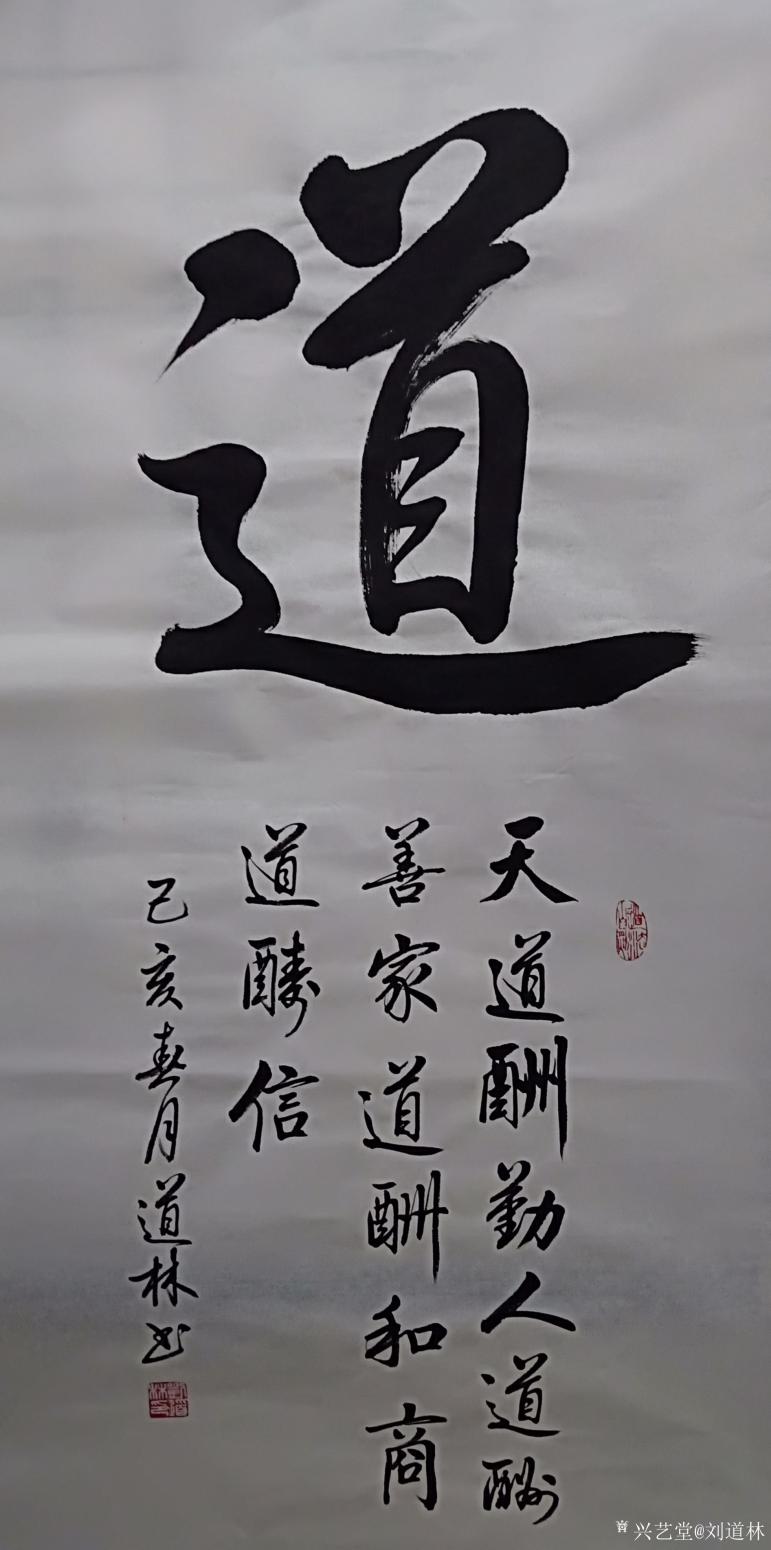 道
天道酬勤人道酬
善家道酬和商
道酬信
己亥春月道林书
兴艺堂@刘道林